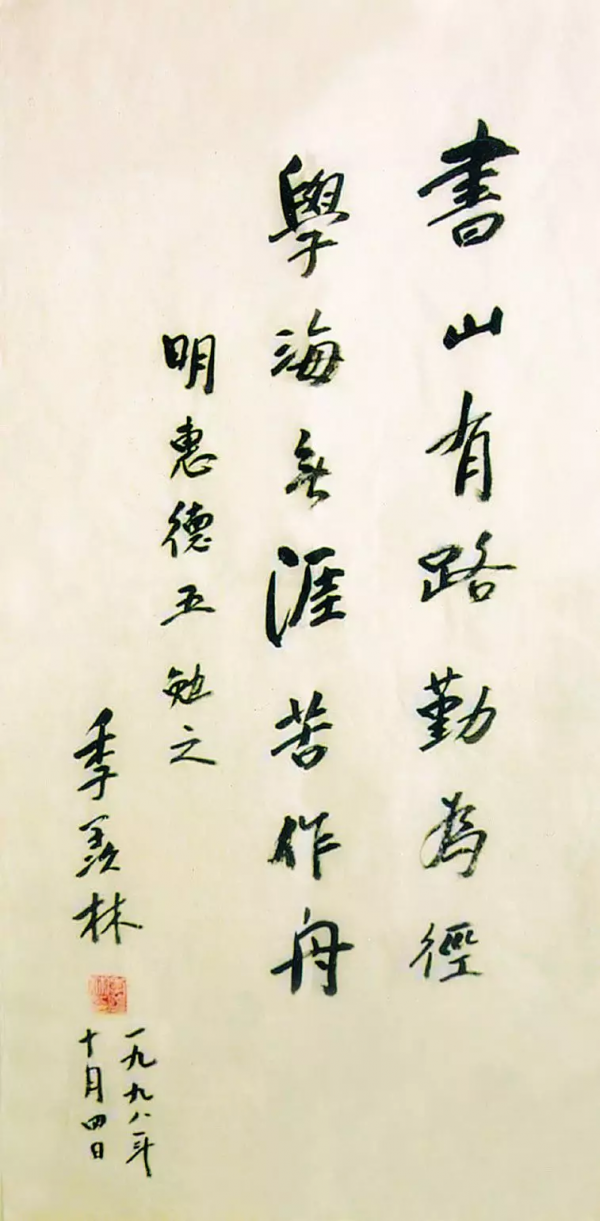 書山有路勤為徑
學海无涯苦作舟
明惠德五勉之
季羨林
一九九八年
十月四日